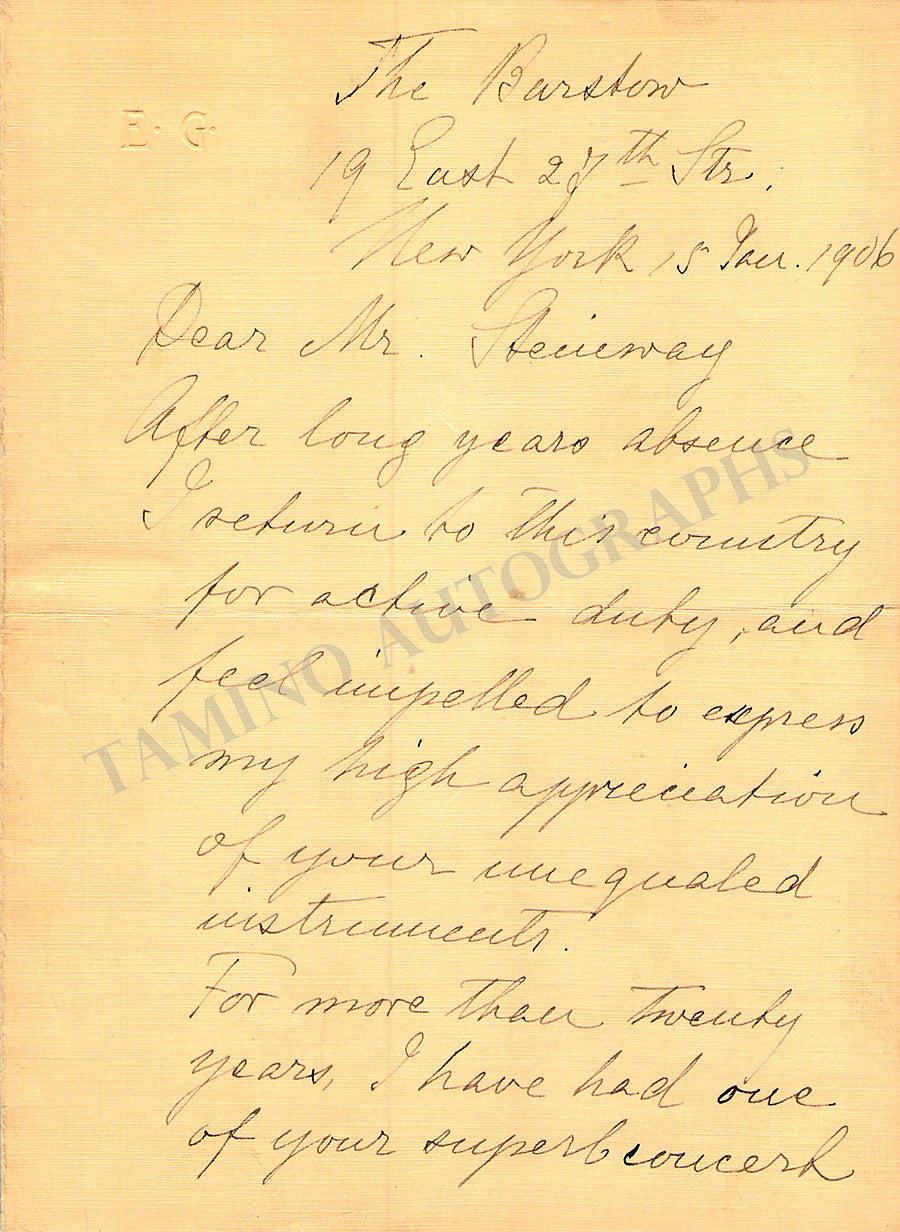 The Barstow
E. G.
19 East 27th Str.
New York 15 Jan. 1906
Dear Mr. Steinway
After long years absence
I return to this country
for active duty, and
feel impelled to express
my high appreciation
of your unequaled
instruments.
For more than twenty
years, I have had one
of your superb concert
TAMINO AUTOGRAPHS